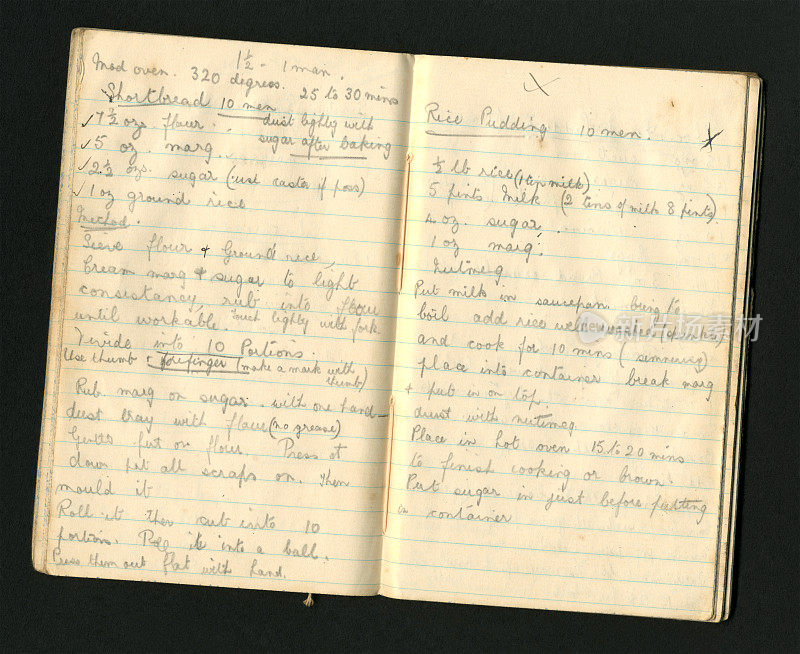 1½ - 1 man.
Mod oven. 320 degrees.
Shortbread 10 men 25 to 30 mins
7½ ozs flour. dust lightly with
5 oz. marg. sugar after baking
2½ ozs. sugar (use caster if poss)
1 oz ground rice
Method.
Sieve flour & Ground rice,
Cream marg & sugar to light
consistancy, rub into flour
until workable. Touch lightly with fork.
Divide into 10 Portions.
Use thumb & forefinger (make a mark with
thumb)
Rub marg on sugar. with one hand -
dust tray with flour (no grease)
put on flour. Press it
down put all scraps on. Then
mould it
Roll it then cut into 10
portions. it into a ball.
Press them out flat with hand.
Rice Pudding 10 men.
½ lb rice (1 tin milk)
5 pints Milk (2 tins of milk 8 pints)
4 oz. sugar.
1 oz marg.
Nutmeg
Put milk in saucepan bring to
boil add rice
and cook for 10 mins (simmering)
place into container break marg
& put in on top.
dust with nutmeg
Place in hot oven 15 to 20 mins
to finish cooking or brown.
Put sugar in just before putting
in container
iStock